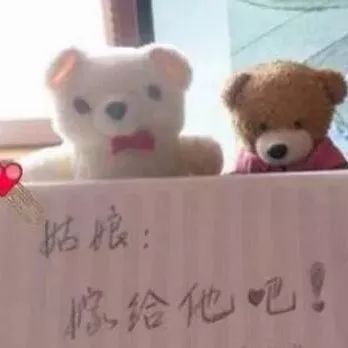 姑娘：
嫁给他吧！